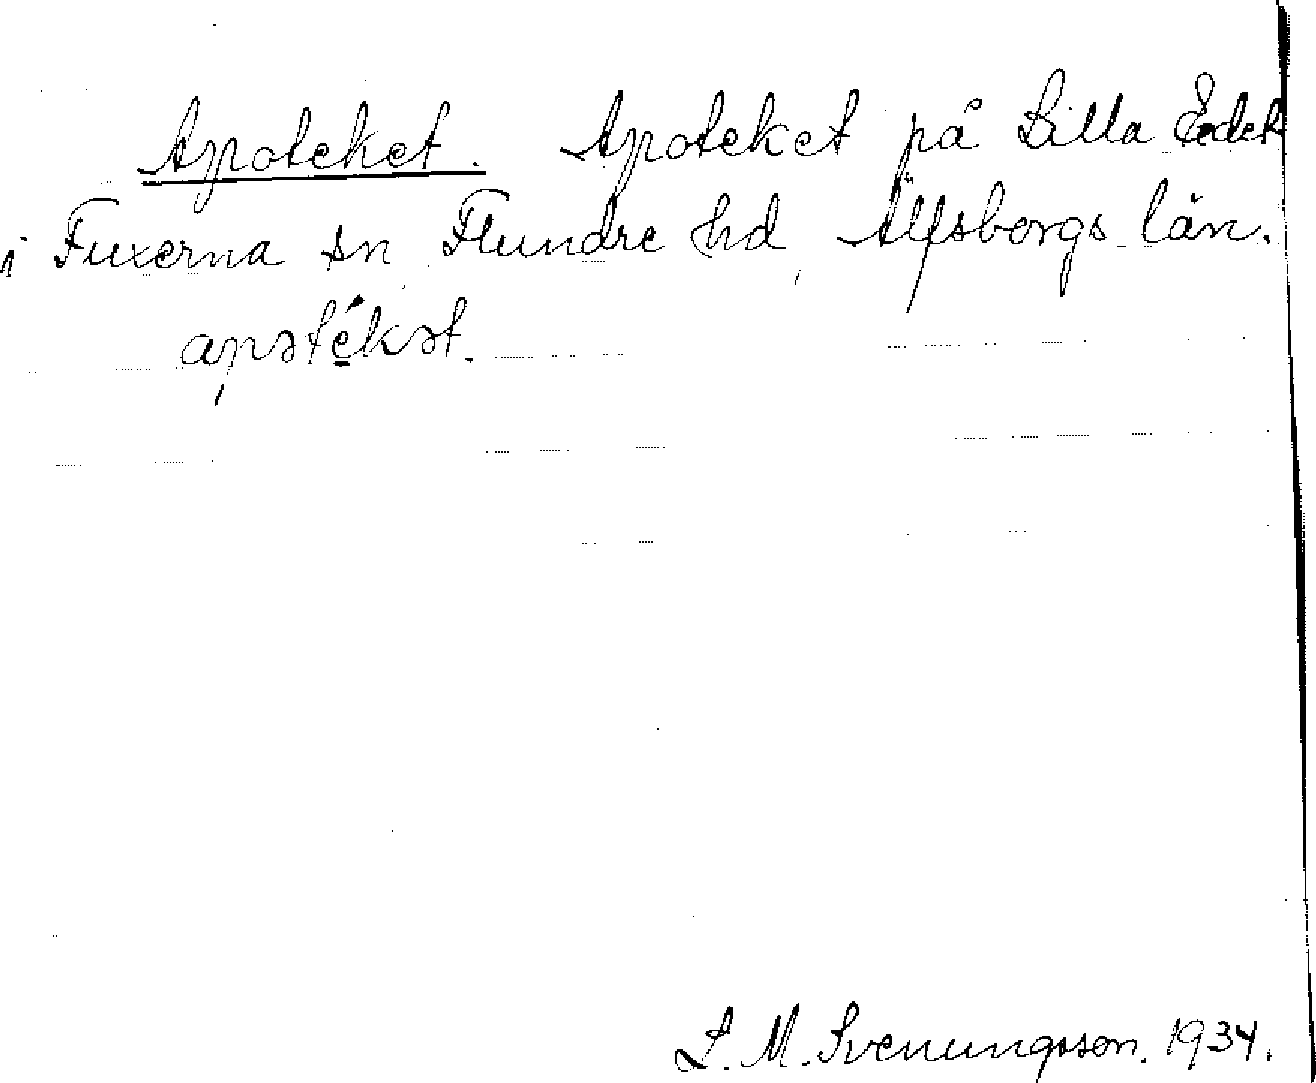 Apoteket. Apoteket på Lilla Edet
i Fuxerna sn Flundre hd, Älfsborgs län.
apətékət.
S. M. Svenungsson. 1934.